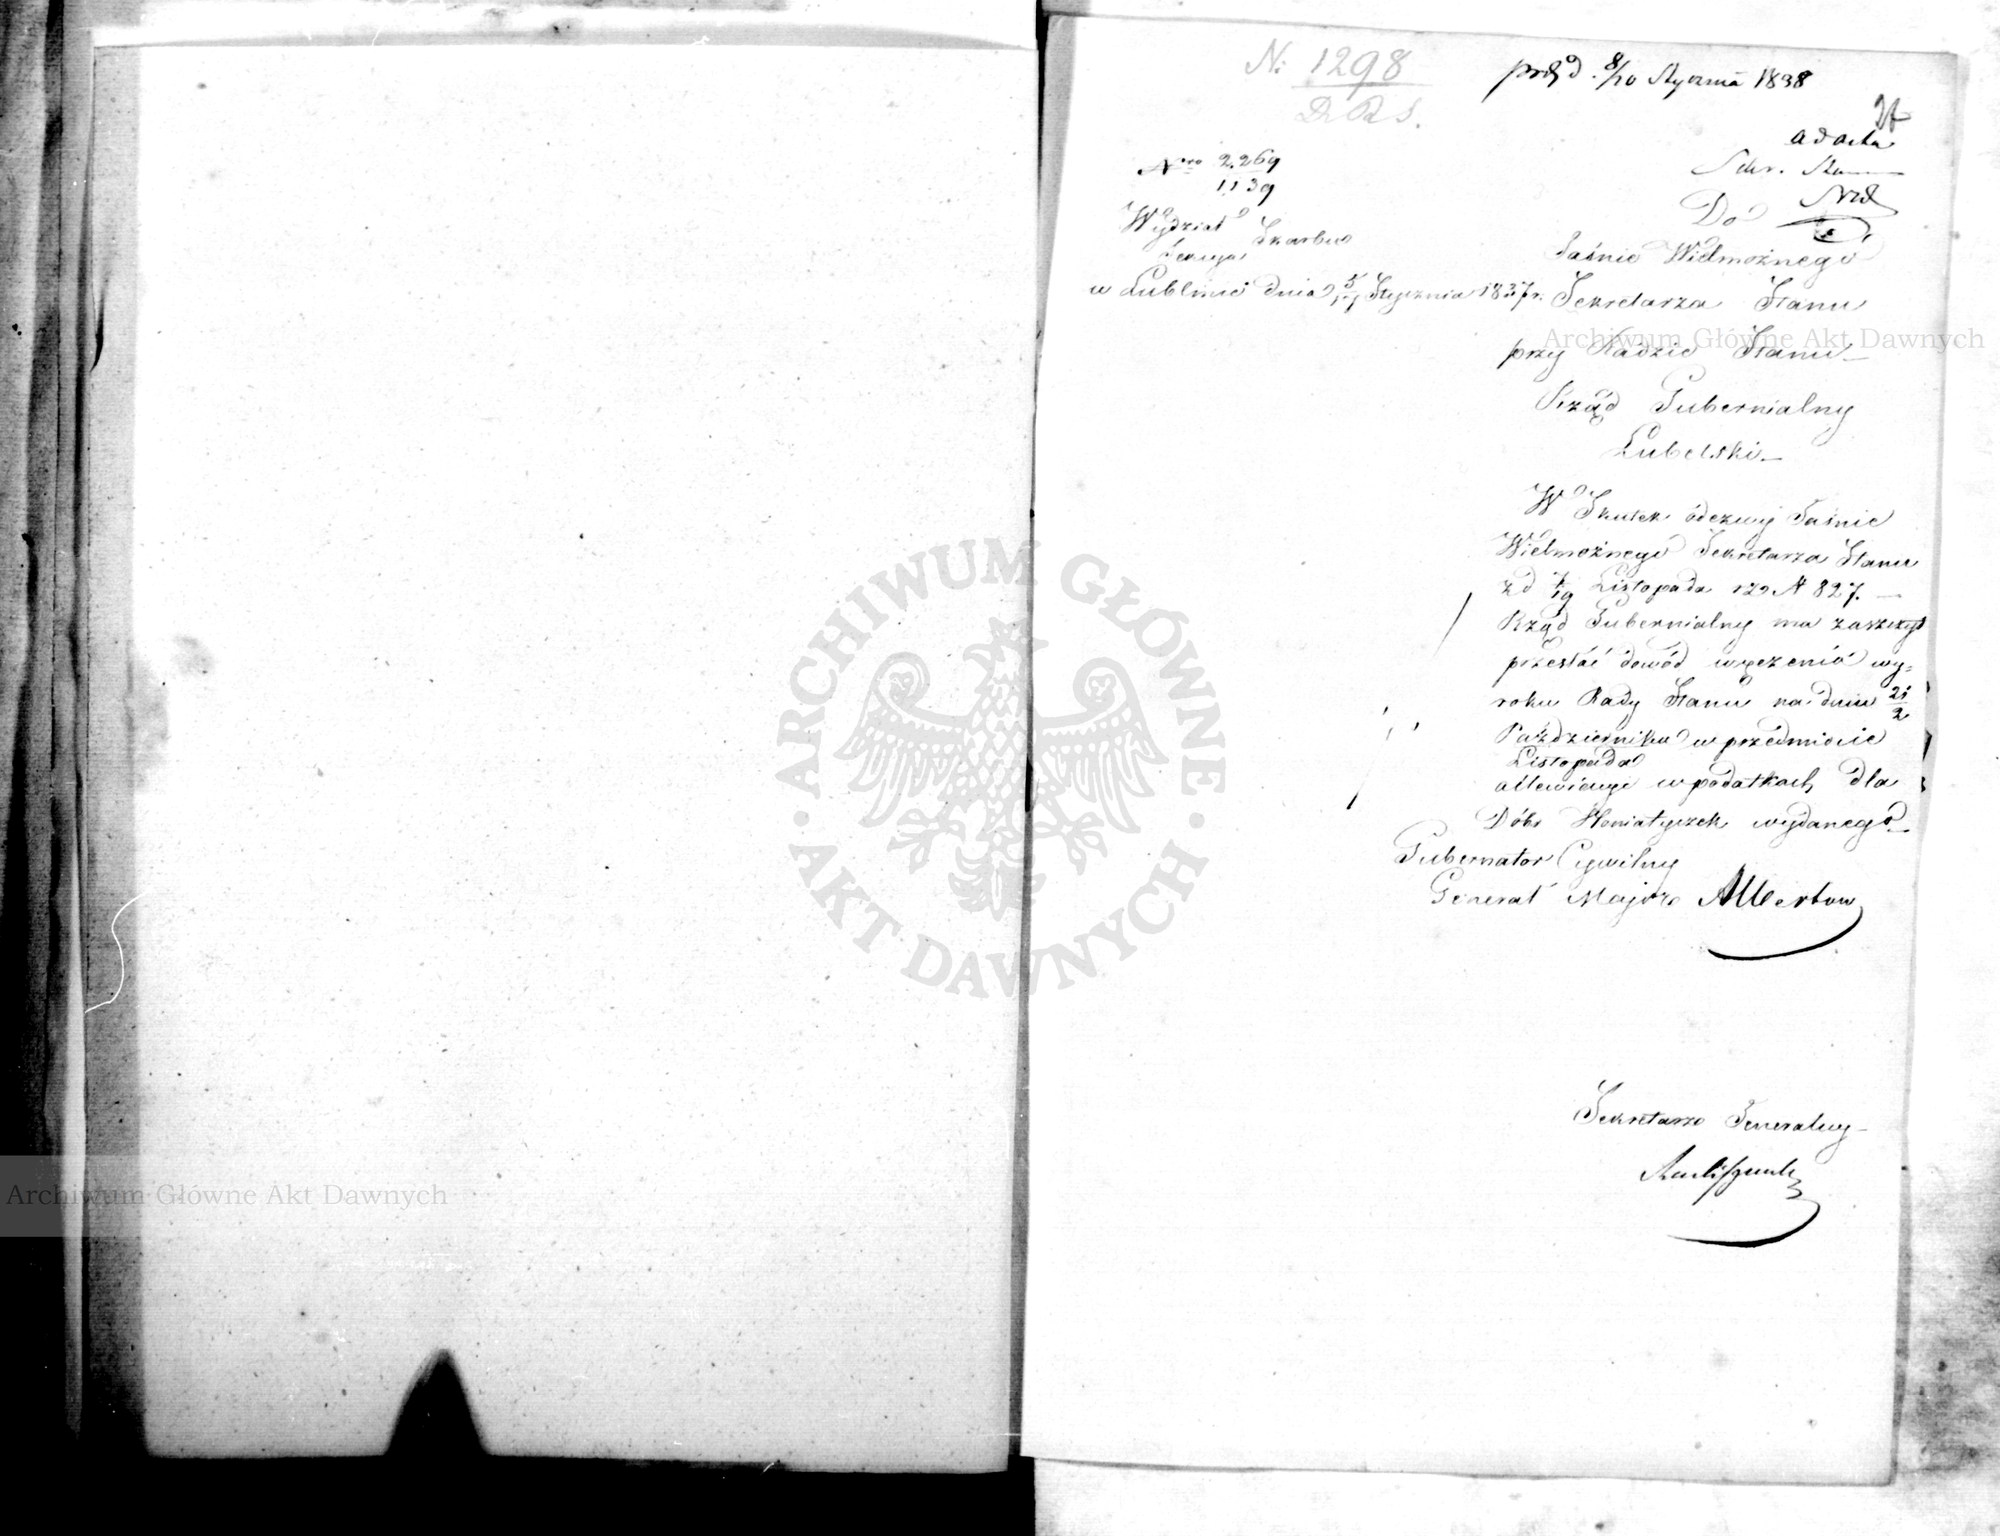 N: 1298
D. R. S.
8/20 Stycznia 1838
ad acta
Nro 2.269
1139
Wydział Skarbu
Sekcya
w Lublinie dnia 5/17 Stycznia 1837/8 r.
Do
Jaśnie Wielmożnego
Sekretarza Stanu
przy Radzie Stanu
Rząd Gubernialny
Lubelski
W Skutek odezwy Jaśnie
Wielmożnego Sekretarza Stanu
z d 7/19 Listopada rzo N 827.
Rząd Gubernialny ma zaszczyt
przesłać dowód wręczenia wy=
roku Rady Stanu na dniu 21/2
Października w przedmiocie
Listopada
allewiacyi w podatkach dla
Dóbr Honiatyczek wydanego
Gubernator Cywilny
Generał Major Albertow
Sekretarz Generalny
ARCHIWUM GŁÓWNE AKT DAWNYCH
Archiwum Główne Akt Dawnych
Archiwum Główne Akt Dawnych